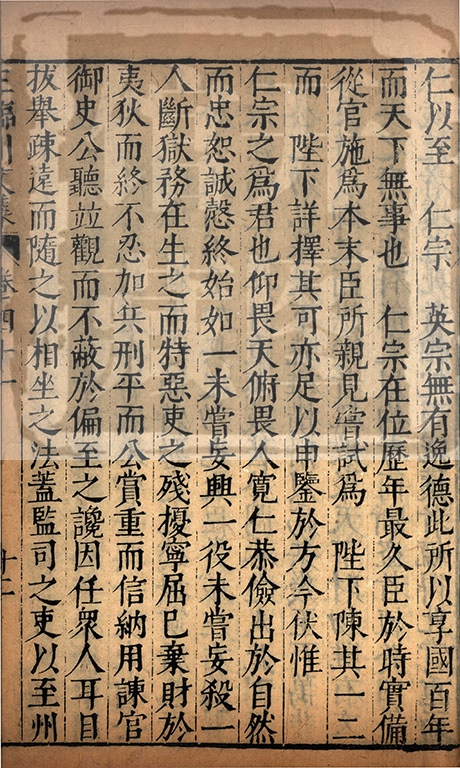 仁以至 仁宗 英宗無有逸德此所以享國百年
而天下無事也 仁宗在位歷年最久臣於時實備
從官施為本末臣所親見嘗試為 陛下陳其一二
而 陛下詳擇其可亦足以申鑒於方今伏惟
仁宗之為君也仰畏天俯畏人寬仁恭儉出於自然
而忠恕誠慤終始如一未嘗妄興一役未嘗妄殺一
人斷獄務在生之而特惡吏之殘擾寧屈已棄財於
夷狄而終不忍加兵刑平而公賞重而信納用諫官
御史公聽並觀而不蔽於偏至之讒因任衆人耳目
拔舉疎遠而隨之以相坐之法蓋監司之吏以至州
王臨川文集 卷四十一 十二